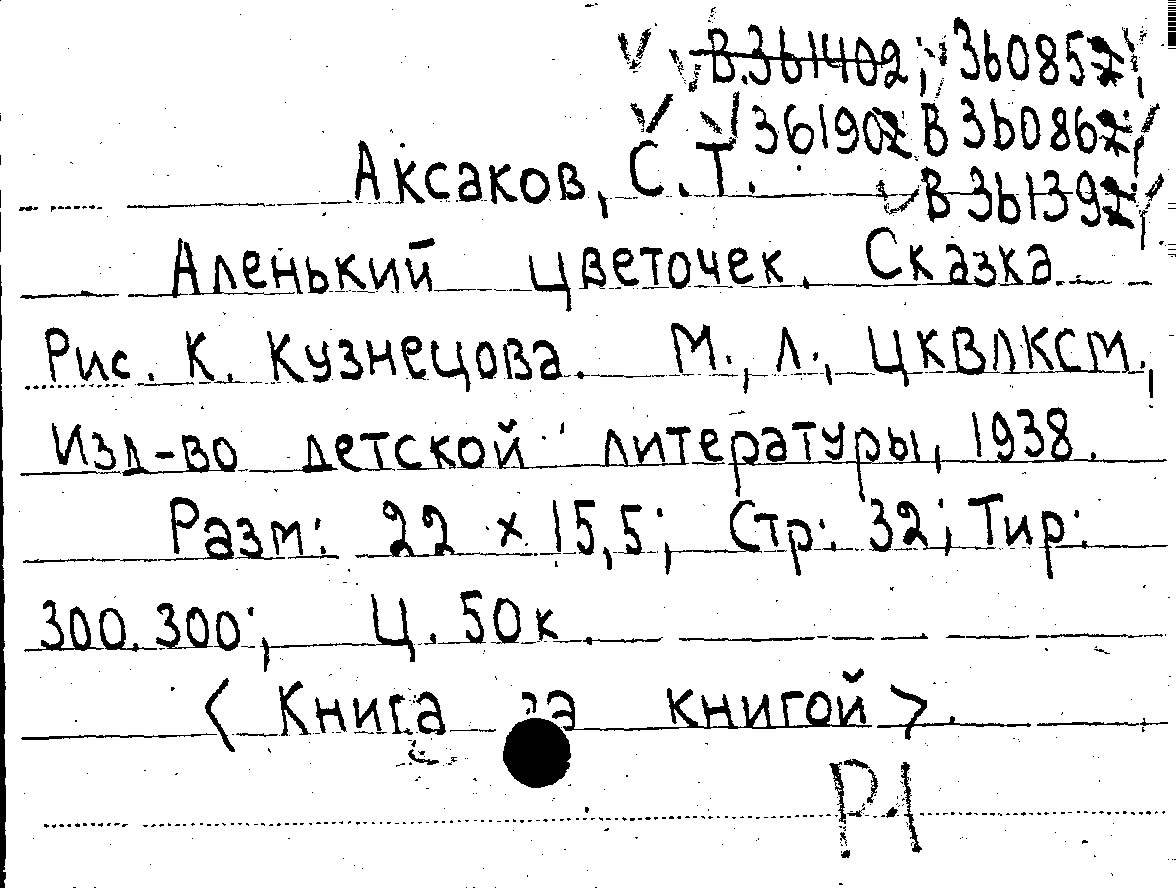 В.361402; 360857,
361902 В 360867,
Аксаков, С. Т.
В 361397
Аленький цветочек. Сказка
Рис. К. Кузнецова. М., Л., ЦКВЛКСМ.,
Изд-во детской литературы, 1938.
Разм: 22 х 15,5; Стр: 32; Тир:
300.300; Ц. 50к.
<Книга за книгой>.
Р1